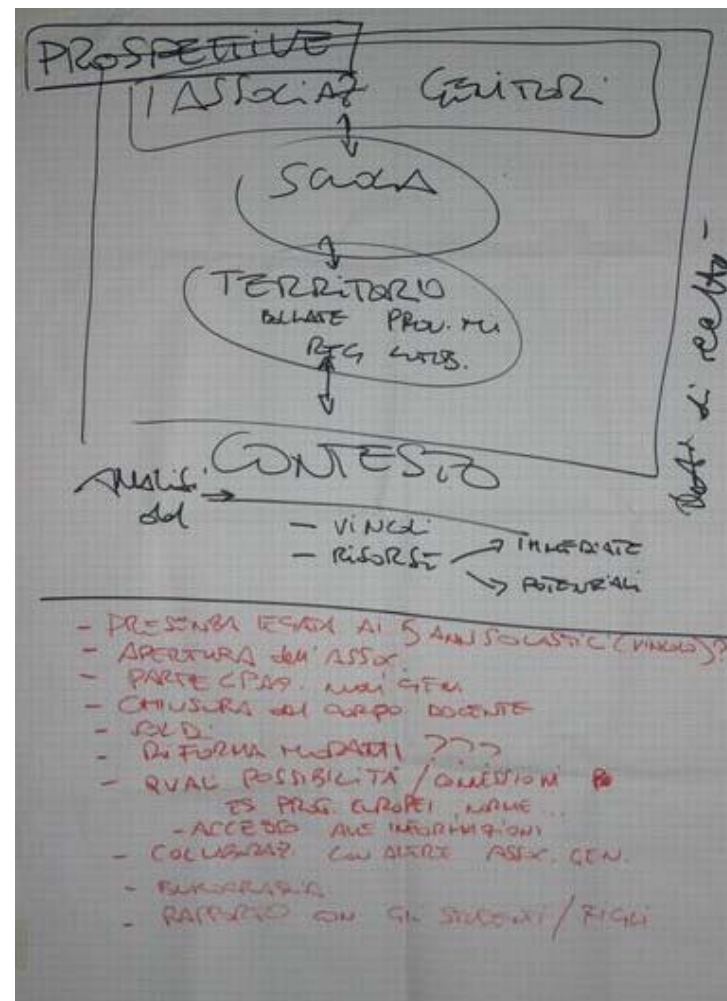 PROSPETTIVE
ASSOCIAZ GENITORI
SCUOLA
TERRITORIO
BOLLATE PROV. MI
REG LOMB.
CONTESTO
ANALISI
del
- VINCOLI
- RISORSE → IMMEDIATE
→ POTENZIALI
di
- PRESENZA LEGATA AI 5 ANNI SCOLASTICI (VINCOLO)?
- APERTURA dell'ASSOC.
- PARTECIPAZ. GEN.
- CHIUSURA del CORPO DOCENTE
- SOLDI
- RIFORMA MORATTI ???
- QUALI POSSIBILITÀ / CONNESSIONI
ES PROG. EUROPEI NORME ...
- ACCESSO ALLE INFORMAZIONI
- COLLABORAZ. CON ALTRE ASSOC. GEN.
- BUROCRAZIA
- RAPPORTO CON GLI STUDENTI / FIGLI